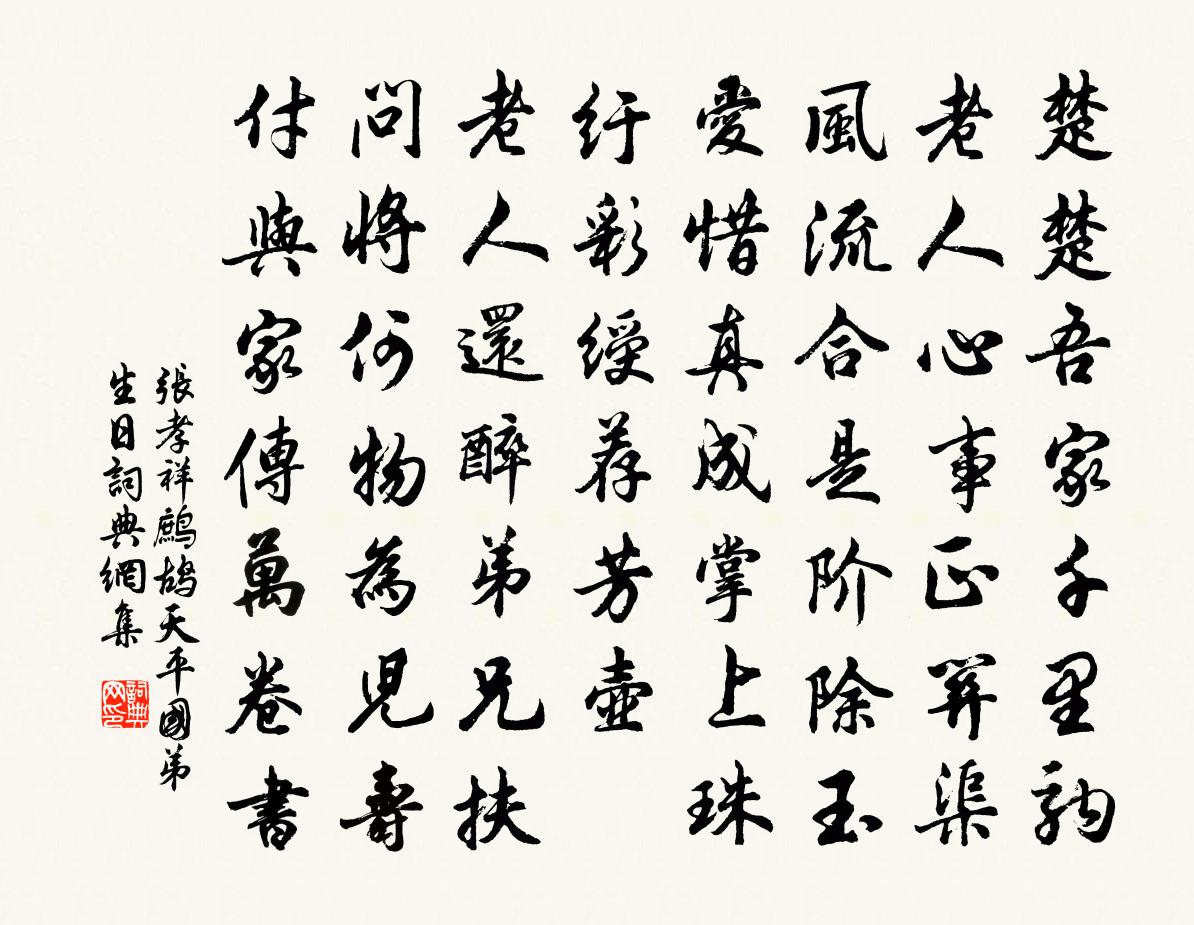 楚楚吾家千里駒
老人心事正關渠
風流合是阶除玉
愛惜真成掌上珠
紆彩綬荐芳壺
老人還醉弟兄扶
問將何物為兒壽
付與家傳萬卷書
張孝祥鷓鴣天平國弟
生日詞典網集
詞典
网印